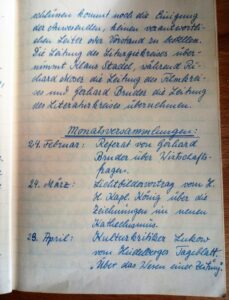 kommt noch die Einigung
der Anwesenden, keinen verantwort-
lichen Leiter oder Vorstand zu bestellen.
Die Leitung des kreises über-
nimmt Klaus Stadel, während Ri-
chard Moser die Leitung des Filmkrei-
ses und Gerhard Bruder die Leitung
des Literaturkreises übernehmen.
Monatsversammlungen:
24. Februar: Referat von Gerhard
Bruder über Wirtschafts-
fragen.
24. März: Lichtbildervortrag von H.
H. Kapl. König über die
Zeichnungen im neuen
Kathechismus.
28. April: Kulturkritiker Lukow
vom Heidelberger Tageblatt:
"Über das Wesen einer Zeitung"